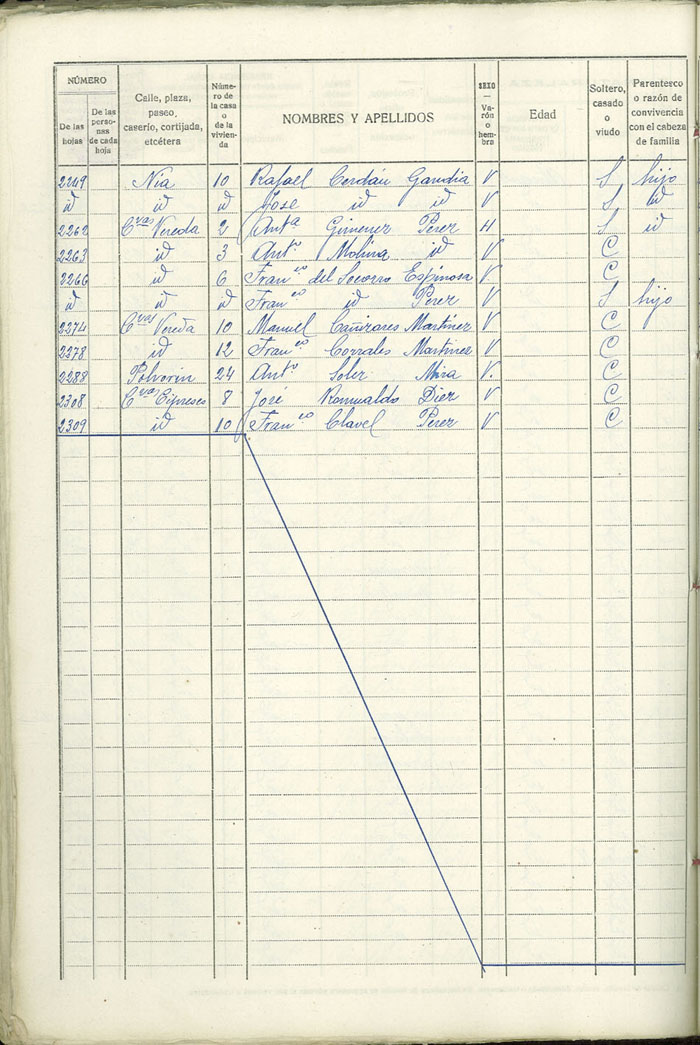 NÚMERO
De las hojas
De las personas de cada hoja
Calle, plaza, paseo, caserío, cortijada, etcétera
Número de la casa o de la vivienda
NOMBRES Y APELLIDOS
SEXO — Varón o hembra
Edad
Soltero, casado o viudo
Parentesco o razón de convivencia con el cabeza de familia
2249 Nia 10 Rafael Cerdán Gandia V S hijo
id id id Jose id id V S id
2262 Cvas Vereda 2 Anta Gimenez Perez H S id
2263 id 3 Anto Molina id V C
2266 id 6 Franco del Socorro Espinosa V C
id id id Franco id Perez V S hijo
2274 Cvas Vereda 10 Manuel Cañizares Martínez V C
2278 id 12 Franco Corrales Martinez V C
2288 Polvorin 24 Anto Soler Mira V. C
2308 Cvas Cipreses 8 José Romualdo Diez V C
2309 id 10 Franco Clavel Perez V C